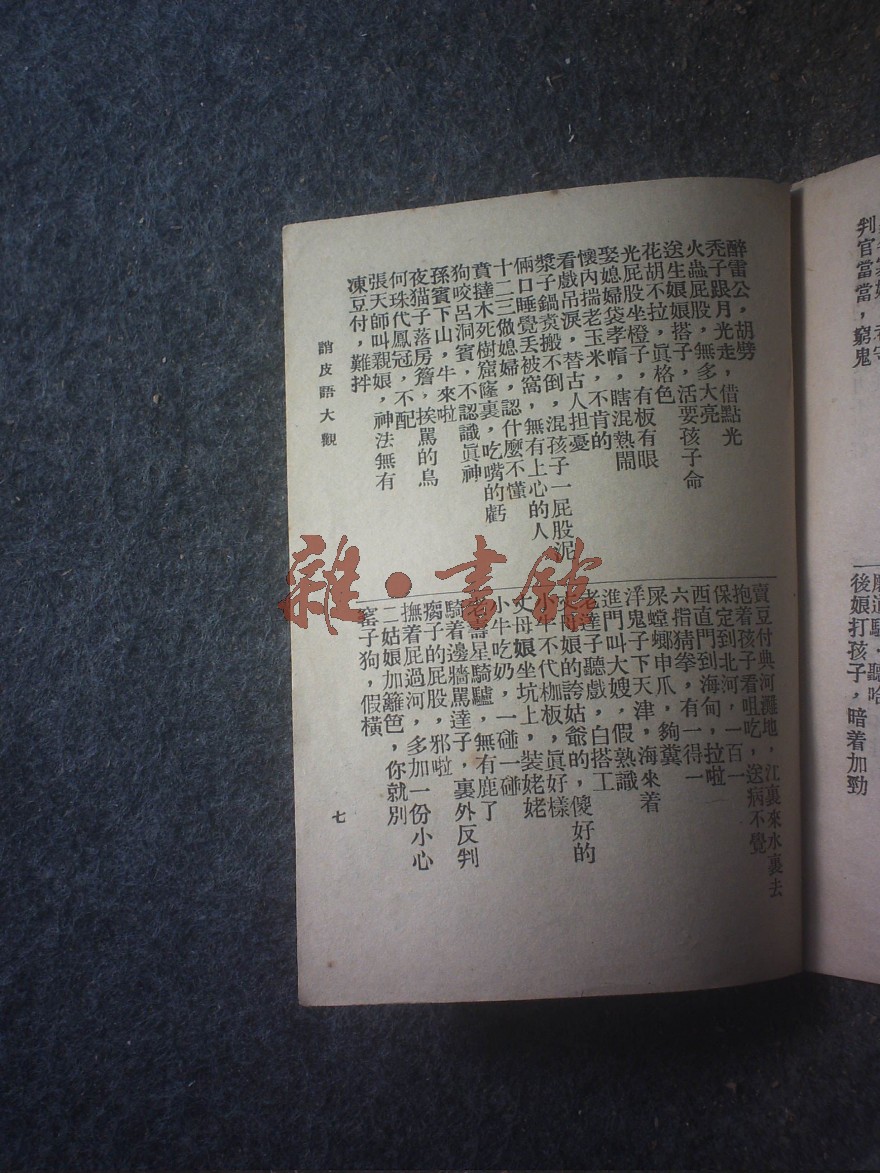 判官當當，窮鬼
後娘打孩子，暗着加勁
醉雷公，胡劈
禿子跟月光走，借點光
火蟲屁股，無多大亮
送生娘娘搭子，活要孩子命
花胡不拉，眞格色
光屁股坐櫈子，有板有眼
娶媳婦袋孝帽，瞎混熱鬧
懷內揣老玉米，不肯的
看戲吊淚，替古人担憂
漿子鍋煑搬不倒，混孩子一屁股泥
倆口睡覺丟被窩，無有上心的人
十二三做媳婦，認什麼不懂
賁撻木死樹窟窿裏，吃嘴的虧
狗咬呂洞賓，不認識眞神
孫賓下山，牛來啦
夜猫子落房簷，挨罵的鳥
何珠代鳳冠，不配
張天師叫親娘，神法無有
凍豆付，難拌
賣豆付典河灘地，江裏來水裏去
抱着孩子看咀吃，送病不覺
保定到北河，一百一
西直門到海甸，拉啦
六指猜拳，有一得一
屎螳螂申爪，夠糞
洋鬼子下天津，海來着
進門叫大嫂，假熟識
老達子聽戲，白搭工
娘的誇姑爺的，傻好的
牛不代枷板，眞好樣
丈母娘坐坑上，裝姥姥
小牛吃奶，一碰一碰
壽星騎驢，無有鹿了
騎着邊牆罵達子，裏外反判
瘸子的屁股，邪啦
撫着屁過河，多加一份小心
二姑娘加籬笆，你就別
窰子狗，假橫
誚皮語大觀
七
雜·書館